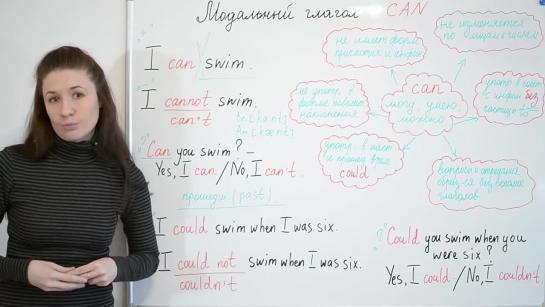 Модальный глагол CAN
"+"
I can swim.
"-"
I cannot swim.
can't
Br. [kɑ:nt]
Am. [kænt]
"?"
Can you swim? –
Yes, I can. / No, I can't.
прошедш (past)
I could swim when I was six.
I could not swim when I was six.
couldn't
не имеет форм
причастия и
не изменяется
по лицам и числам
can
могу, умею,
можно
не употр. в
наклонения
употр. в наст
и прошед врем.
could
употр. в
с инфин без
частицы to
вопросы и отрицания
обра、ся без
глаголов
"?"
Could you swim when you
were six?
Yes, I could / No, I couldn't.